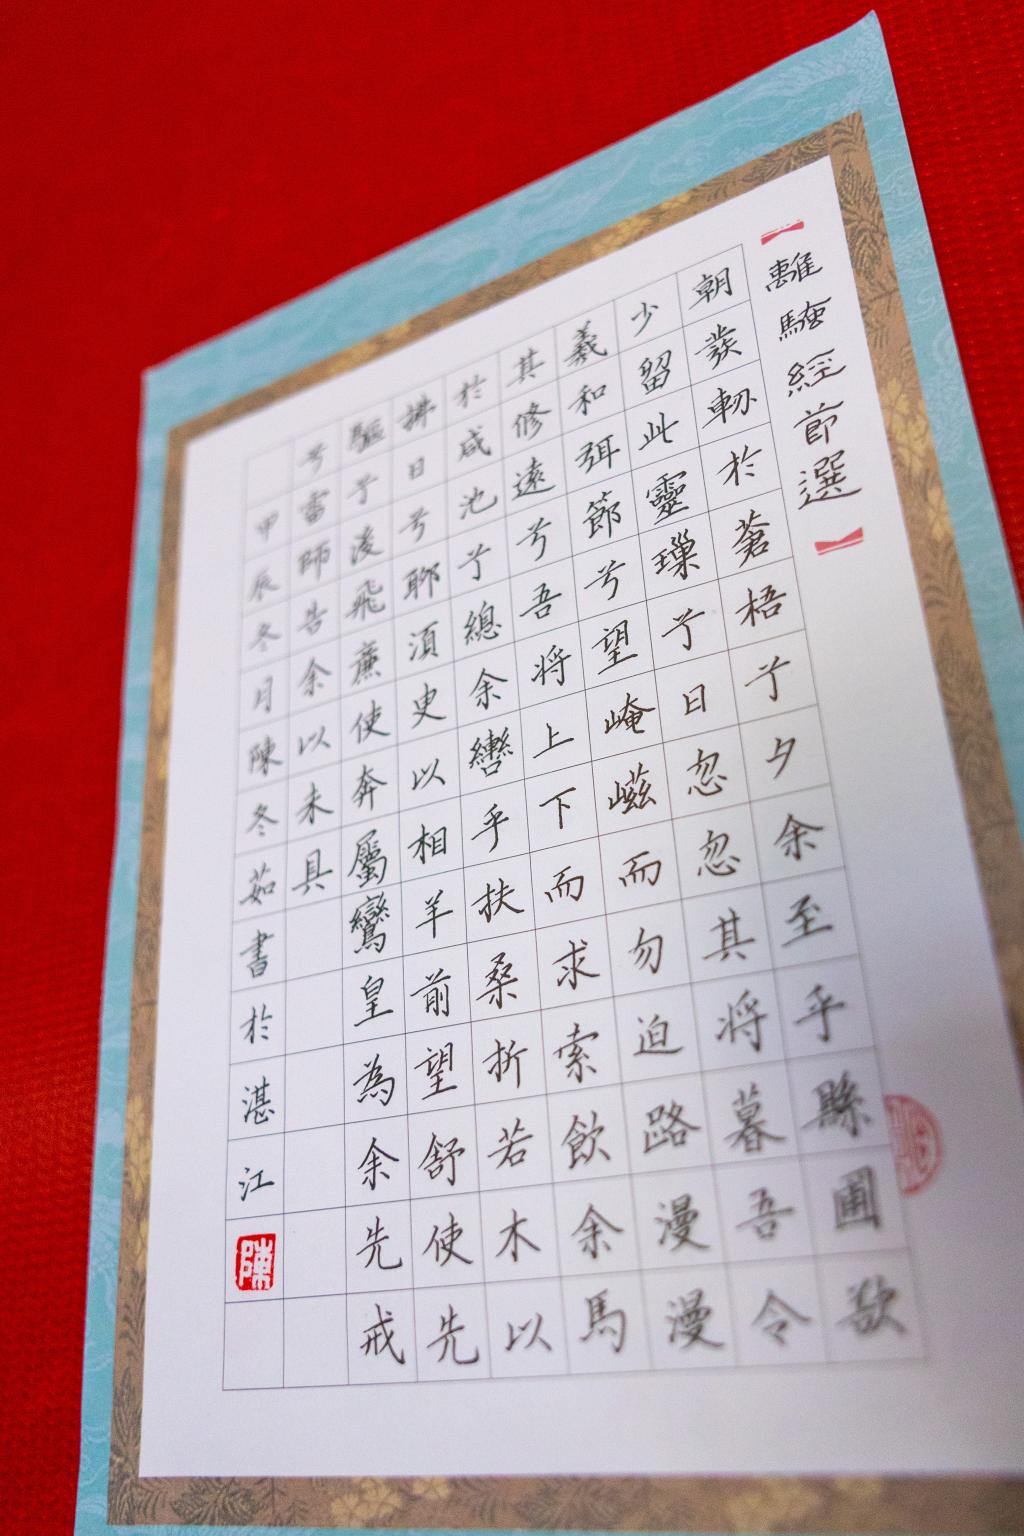 【離騷經節選】
朝發軔於蒼梧兮夕余至乎縣圃欲
少留此靈璅兮日忽忽其将暮吾令
羲和弭節兮望崦嵫而勿迫路漫漫
其修遠兮吾将上下而求索飲余馬
於咸池兮總余轡乎扶桑折若木以
拂日兮聊須臾以相羊前望舒使先
驅兮後飛廉使奔屬鸞皇為余先戒
兮雷師告余以未具
甲辰冬月陳冬茹書於湛江
陳